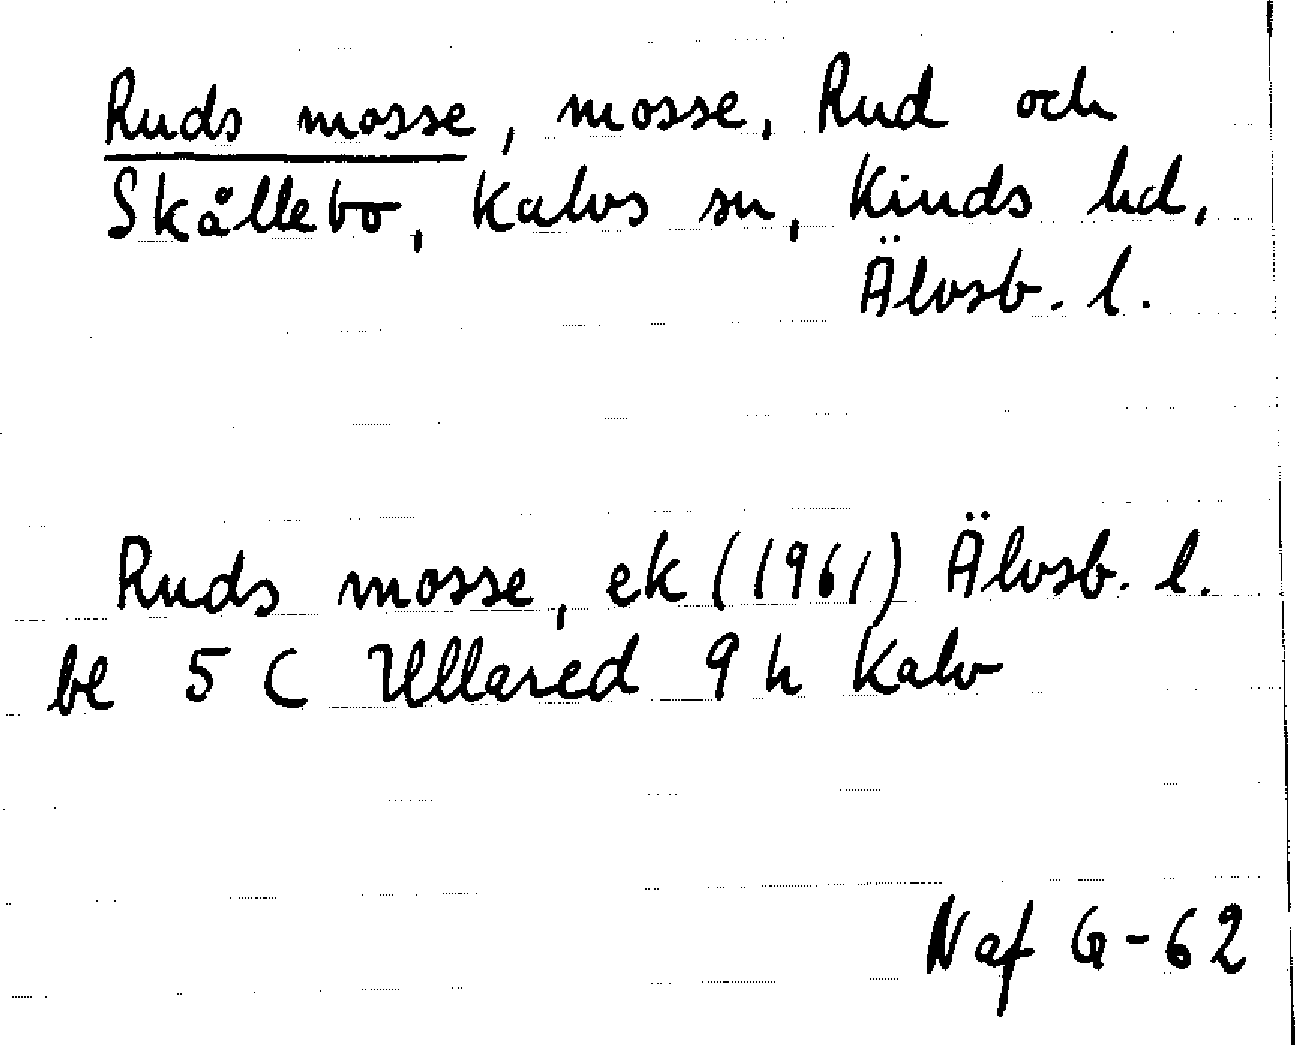 Ruds mosse, mosse, Rud och
Skållebo, Kalvs sn, Kinds hd,
Älvsb. l.
Ruds mosse, ek (1961) Älvsb. l.
bl 5 C Ullared 9 h Kalv
Naf G-62